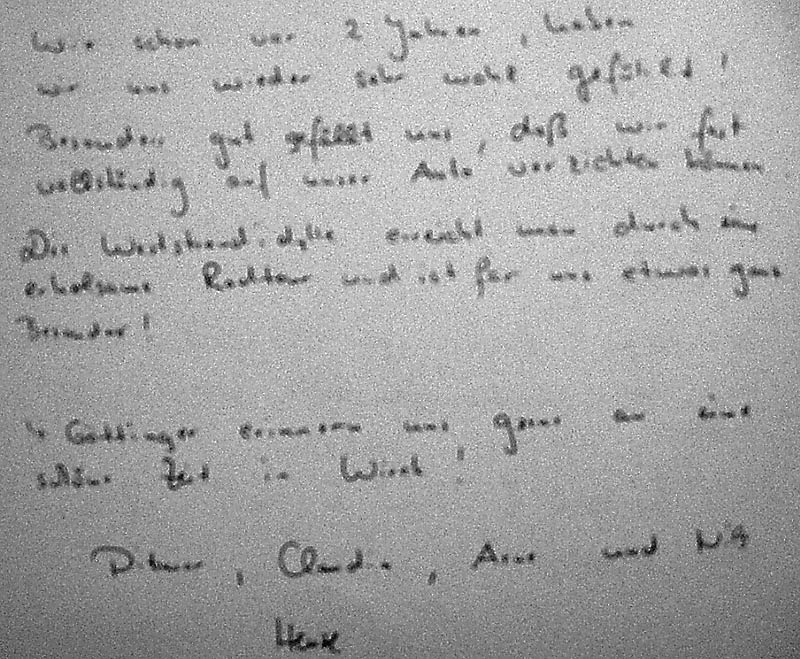 Wie schon vor 2 Jahren, haben
wir uns wieder sehr wohl gefühlt!
Besonders gut gefällt uns, daß wir fast
vollständig auf unser Auto verzichten können
Die erreicht man durch eine
erholsame Radtour und ist für uns etwas ganz
Besonders!
4 Göttinger erinnern uns gerne an eine
schöne Zeit in
, Claudia, Arne und Nils